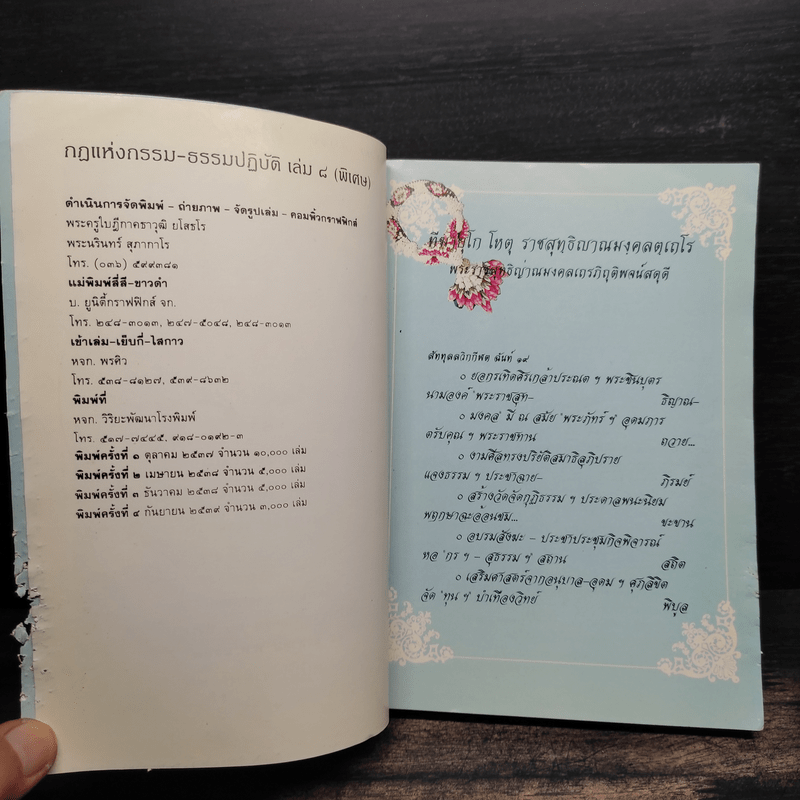 กฎแห่งกรรม-ธรรมปฏิบัติ เล่ม ๘ (พิเศษ)
ดำเนินการจัดพิมพ์ - ถ่ายภาพ - จัดรูปเล่ม - คอมพิ้วกราฟฟิกส์
พระครูใบฎีกาคธาวุฒิ ยโสธโร
พระนรินทร์ สุภากาโร
โทร. (๐๓๖) ๕๙๙๓๘๑
แม่พิมพ์สี่สี-ขาวดำ
บ. ยูนิตี้กราฟฟิกส์ จก.
โทร. ๒๔๘-๓๐๑๓, ๒๔๗-๕๐๔๘, ๒๔๘-๓๐๑๓
เข้าเล่ม-เย็บกี่-ไสกาว
หจก. พรศิว
โทร. ๕๓๘-๘๑๒๗, ๕๓๙-๘๖๓๒
พิมพ์ที่
หจก. วิริยะพัฒนาโรงพิมพ์
โทร. ๕๑๗-๗๔๔๕, ๙๑๘-๐๑๙๒-๓
พิมพ์ครั้งที่ ๑ ตุลาคม ๒๕๓๗ จำนวน ๑๐,๐๐๐ เล่ม
พิมพ์ครั้งที่ ๒ เมษายน ๒๕๓๘ จำนวน ๕,๐๐๐ เล่ม
พิมพ์ครั้งที่ ๓ ธันวาคม ๒๕๓๘ จำนวน ๕,๐๐๐ เล่ม
พิมพ์ครั้งที่ ๔ กันยายน ๒๕๓๙ จำนวน ๓,๐๐๐ เล่ม
โหตุ ราชสุทธิญาณมงคลตเถโร
พระราชสุทธิญาณมงคลเถรภิถุติพจน์สดุดี
สัททุลลวิกกีฬต ฉันท์ ๑๙
๐ ยอกรเทิดศิรเกล้าประณต ฯ พระชินบุตร
นามองค์ "พระราชสุท- ธิญาณ-
๐ มงคล" มี ณ สมัย "พระภัทร์ ฯ" อุดมภาร
ตรับคุณ ฯ พระราชทาน ถวาย...
๐ งามศีลทรงปริยัติสมาธิสุภิปราย
แจงธรรม ฯ ประชาฉาย- ภิรมย์
๐ สร้างวัดจัดกุฏิธรรม ฯ ประดาลพนะนิยม
พฤกษาฉะอ้อนชม... ชะชาน
๐ อบรมสังฆะ - ประชาประชุมกิจพิจารณ์
หอ "กร ฯ - สุธรรม ฯ" สถาน สถิต
๐ เสริมศาสตร์จากอนุบาล-อุดม ฯ ศุภลิขิต
จัด "ทุน ฯ" บำเทืองวิทย์ พิบูล